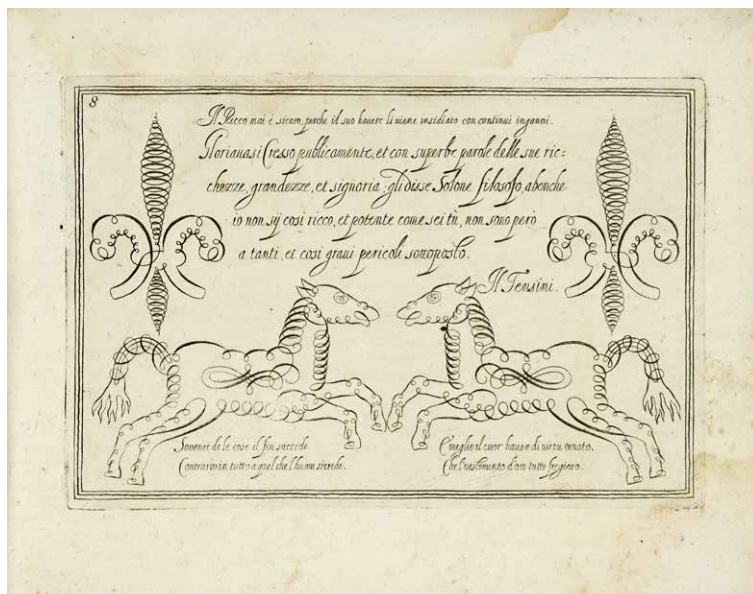 8
Il Ricco mai è sicuro, perche il suo havere li viene insidiato con continui inganni.
Gloriavasi Cresso publicamente, et con superbe parole delle sue ric=
chezze, grandezze, et signoria; gli disse Solone filosofo, abenche
io non sij cosi ricco, et potente come sei tù, non sono però
a tanti, et cosi gravi pericoli sottoposto.
Il Tensini.
Sovente de le cose il fin succede
Contrario in tutto a quel che l'huom si crede.
E meglio il cuor havere di virtù ornato,
Che l'vestimento d'oro tutto fregiato.